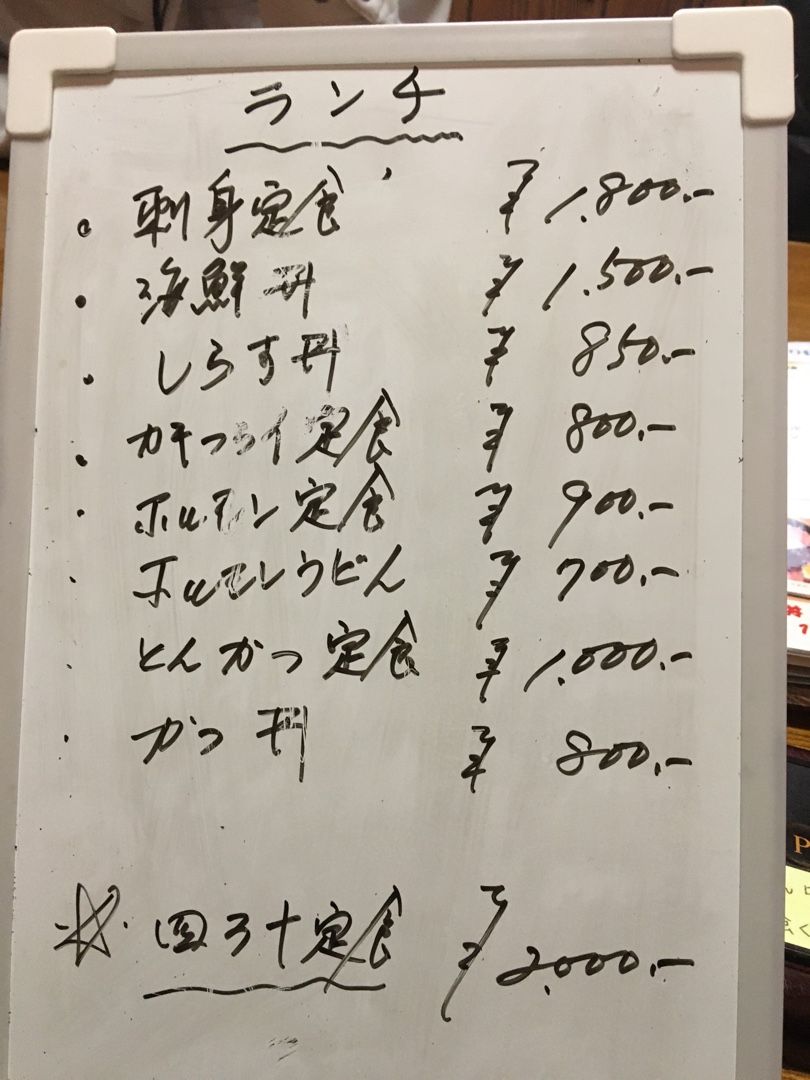 ランチ
・刺身定食 ¥1.800.-
・海鮮丼 ¥1.500.-
・しらす丼 ¥850.-
・ ¥800.-
・ホルモン定食 ¥900.-
・ホルモンうどん ¥700.-
・とんかつ定食 ¥1.000.-
・かつ丼 ¥800.-
☆四ろ十定食 ¥2.000.-